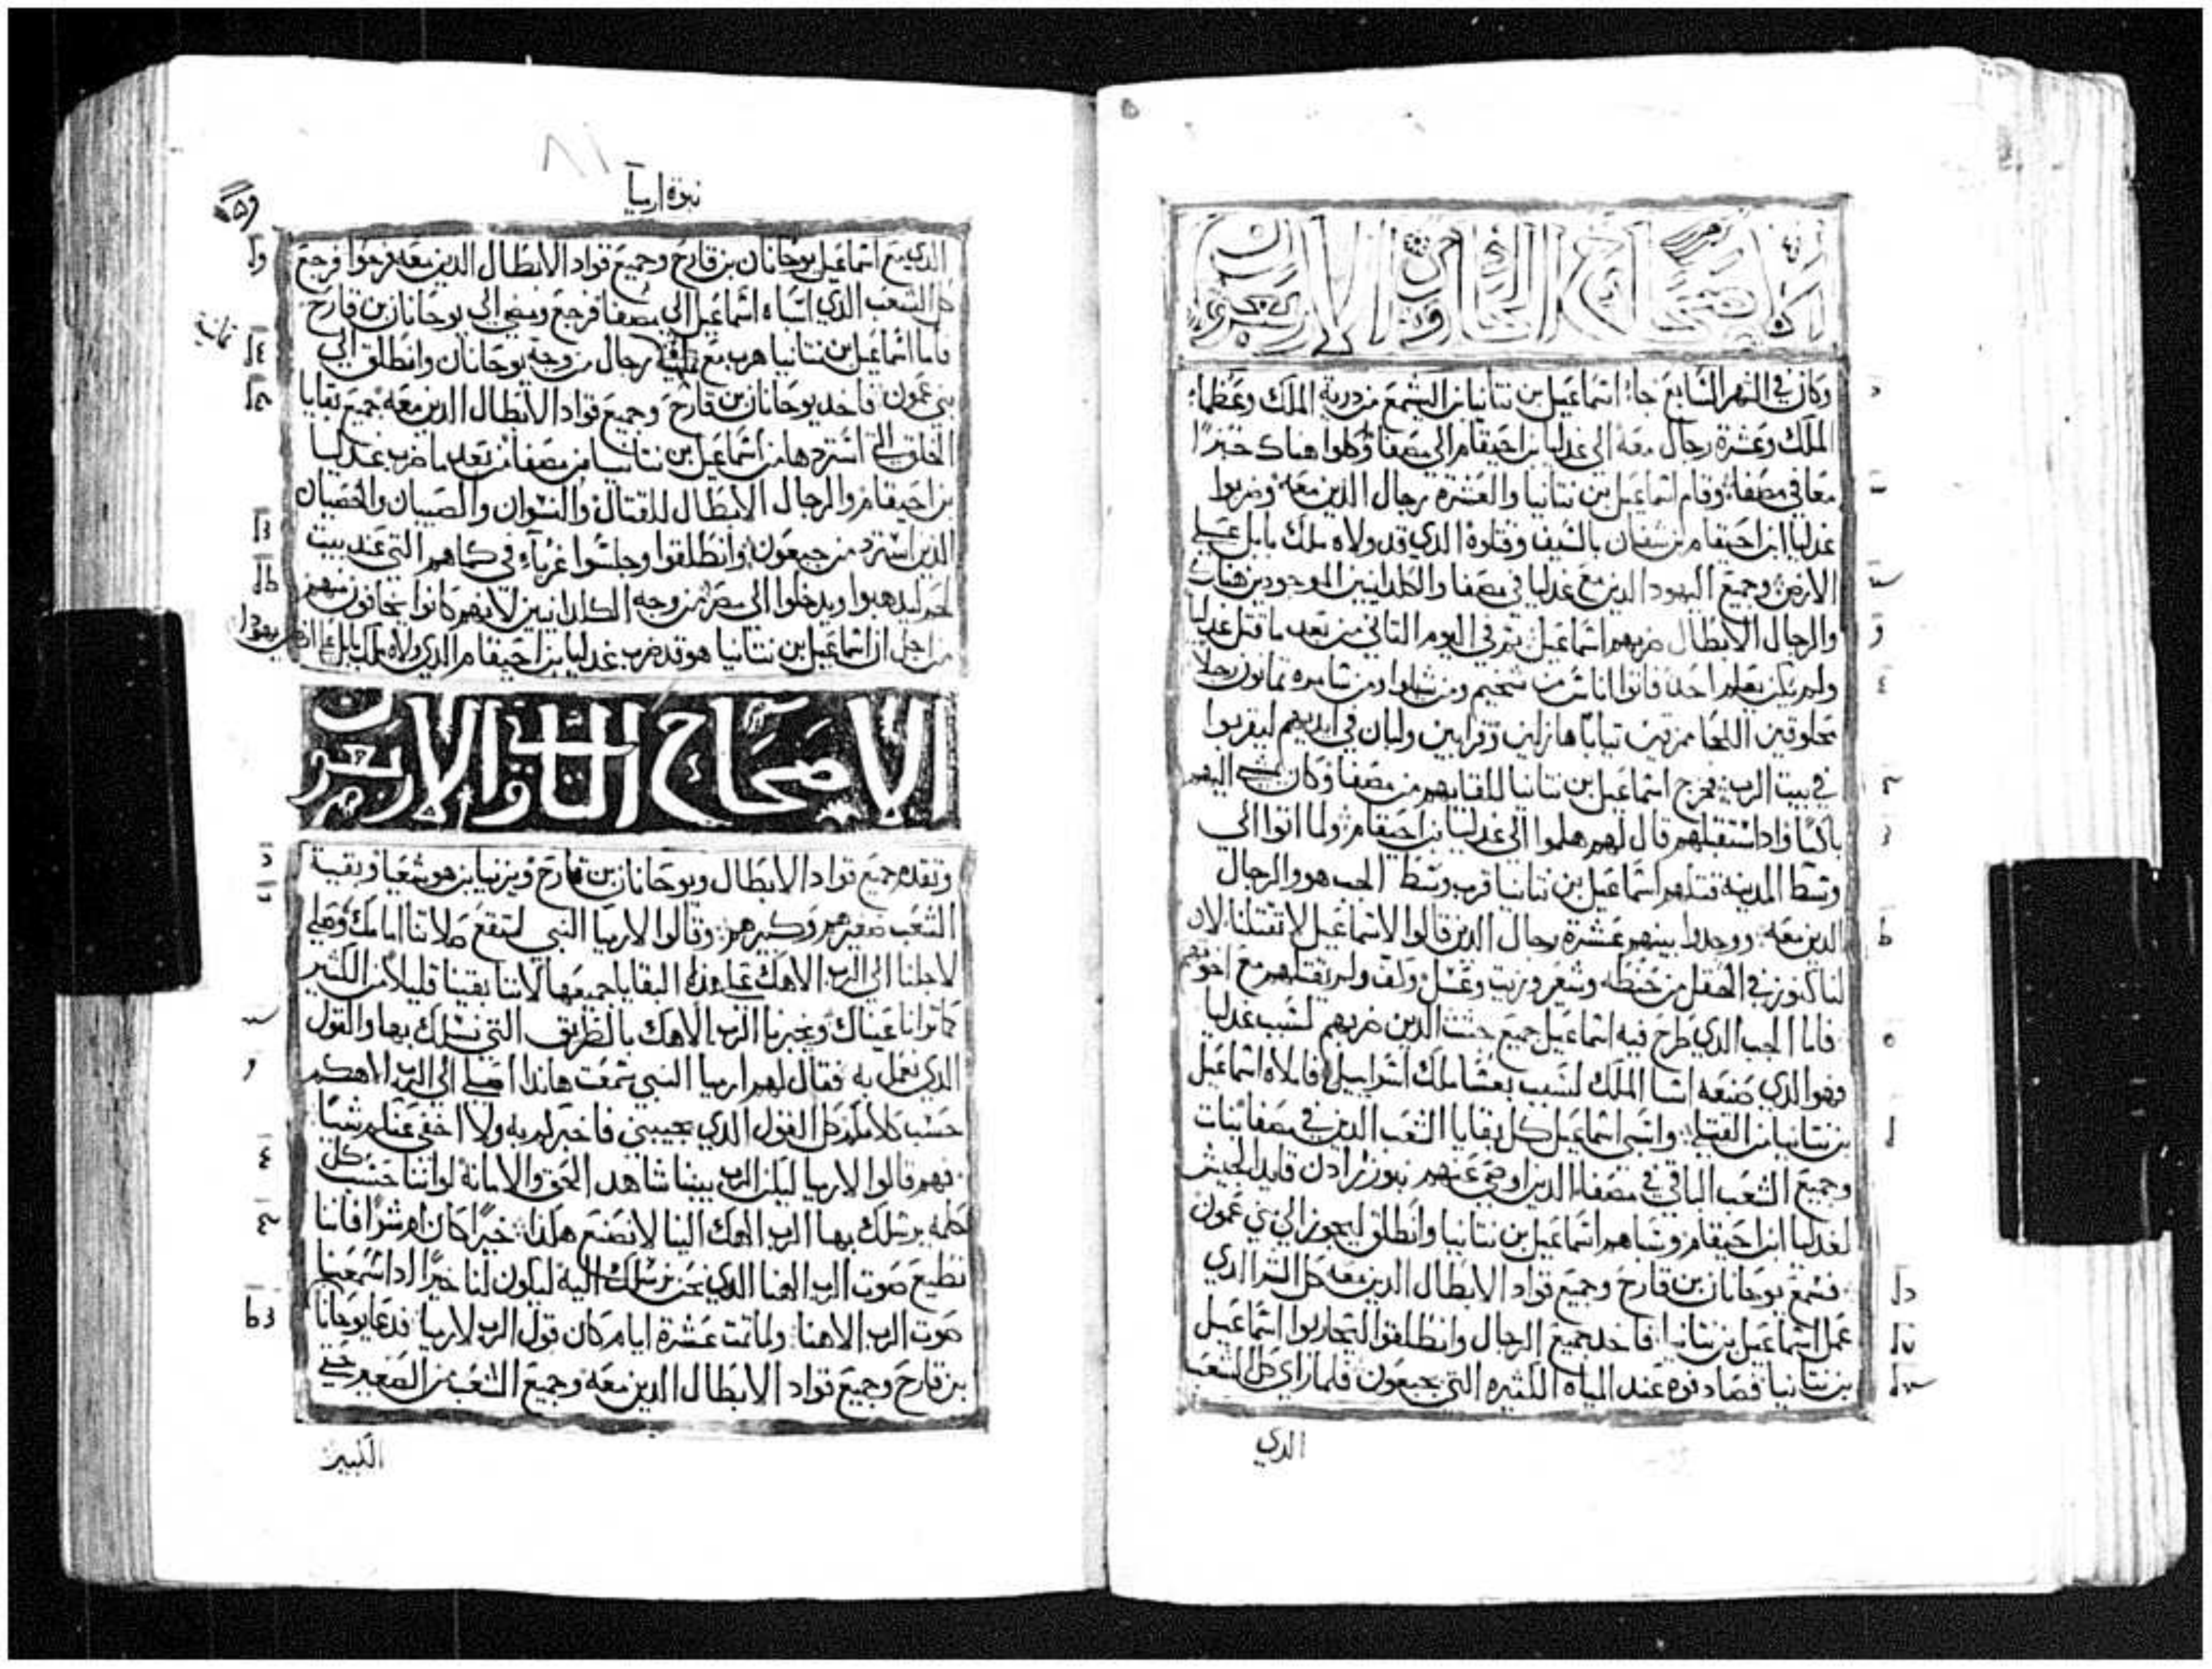 الاصحاح الثامن والاربعون
وكان في الشهر السابع جاء اسماعيل بن نتانيا بن اليشمع من درية الملك وعظماء
الملك وعشرة رجال معه الى غدليا بن احيقام الى مصفا وكلوا هناك خبزا
معا في مصفا وقام اسماعيل بن نتانيا والعشرة رجال الدين معه وضربوا
غدليا ابن احيقام بن شفان بالسيف وقتلوه الدي قد ولاه ملك بابل على
الارض وجميع اليهود الدين مع غدليا في مصفا والكلدانيين الموجودين هناك
والرجال الابطال ضربهم اسماعيل ثم في اليوم التاني من بعد ما قتل غدليا
ولم يكن يعلم احد فاتوا اناس من شخيم ومن شيلوا ومن شامره تمانون رجلا
محلوقين اللحا ممزقين تيابا هازلين وقرابين ولبان في ايديهم ليقربوا
في بيت الرب فخرج اسماعيل بن نتانيا للقايهم من مصفا وكان اليهم
باكيا وادا استقبلهم قال لهم هلموا الى غدليا بن احيقام ولما اتوا الى
وسط المدينة قتلهم اسماعيل بن نتانيا قرب وسط الجب هو والرجال
الدين معه ووجدوا بينهم عشرة رجال الدين قالوا لاسماعيل لا تقتلنا لان
لنا كنوز في الحقل من حنطه وشعير وزيت وعسل وكف ولم يقتلهم مع اخوتهم
فاما الجب الدي طرح فيه اسماعيل جميع جتت الدين ضربهم لسبب غدليا
فهو الدي صنعه اسا الملك لسبب بعشا ملك اسراييل فاملاه اسماعيل
بن نتانيا من القتلى واسبى اسماعيل كل بقايا الشعب الدين في مصفا بنات
وجميع الشعب الباقي في مصفا الدين اوصى عنهم نبوزرادن قايد الجيش
لغدليا ابن احيقام وسباهم اسماعيل بن نتانيا وانطلق ليجوز الى بني عمون
فسمع يوحانان بن قارح وجميع قواد الابطال الدين معه كل الشر الدي
عمل اسماعيل بن نتانيا فاخد جميع الرجال وانطلقوا ليحاربوا اسماعيل
بن نتانيا فصادفوه عند المياه الكثيره التي بجبعون فلما راى كل الشعب
الدي
نبوة ارميا
الدي مع اسماعيل يوحانان بن قارح وجميع قواد الابطال الدين معه فرحوا فرجع
كل الشعب الدي اسباه اسماعيل الى مصفا فرجع ومضى الى يوحانان بن قارح
فاما اسماعيل بن نتانيا هرب مع رجال من وجه يوحانان وانطلق الى
تمانية
بني عمون فاخد يوحانان بن قارح وجميع قواد الابطال الدين معه جميع بقايا
الخلق التي استردها من اسماعيل بن نتانيا من مصفا من بعد ما ضرب غدليا
بن احيقام والرجال الابطال للقتال والنسوان والصبيان والخصيان
الدين استرد من جبعون وانطلقوا وجلسوا غرباء في كماهم التي عند بيت
لحم ليدهبوا ويدخلوا الى مصر من وجه الكلدانيين لانهم كانوا يخافون منهم
من اجل ان اسماعيل بن نتانيا هو قد ضرب غدليا بن احيقام الدي ولاه ملك بابل على ارض يهودا
الاصحاح والاربعون
وتقدم جميع قواد الابطال ويوحانان بن قارح ويزنيا بن هوشعيا وبقية
الشعب صغيرهم وكبيرهم وقالوا لارميا النبي لتقع صلاتنا امامك وصلي
لاجلنا الى الرب الاهك على هده البقايا جميعها لاننا بقينا قليلا من الكثير
كما ترانا عيناك ويخبرنا الرب الاهك بالطريق التي نسلك بها والقول
الدي نعمل به فقال لهم ارميا النبي سمعت هاندا اصلي الى الرب الاهكم
حسب كلامكم كل القول الدي يجيبني فاخبركم به ولا اخفي عنكم شيا
فهم قالوا لارميا ليكن الرب بيننا شاهد الحق والامانة لو اننا حسب كل
كلمه يرسلك بها الرب الاهك الينا لا نصنع هكذا خيرا كان ام شرا فاننا
نطيع صوت الرب الاهنا الدي نحن نرسلك اليه ليكون لنا خيرا ادا سمعنا
صوت الرب الاهنا ولما تمت عشرة ايام كان قول الرب لارميا فدعا يوحانان
بن قارح وجميع قواد الابطال الدين معه وجميع الشعب من الصغير حتى
الكبير